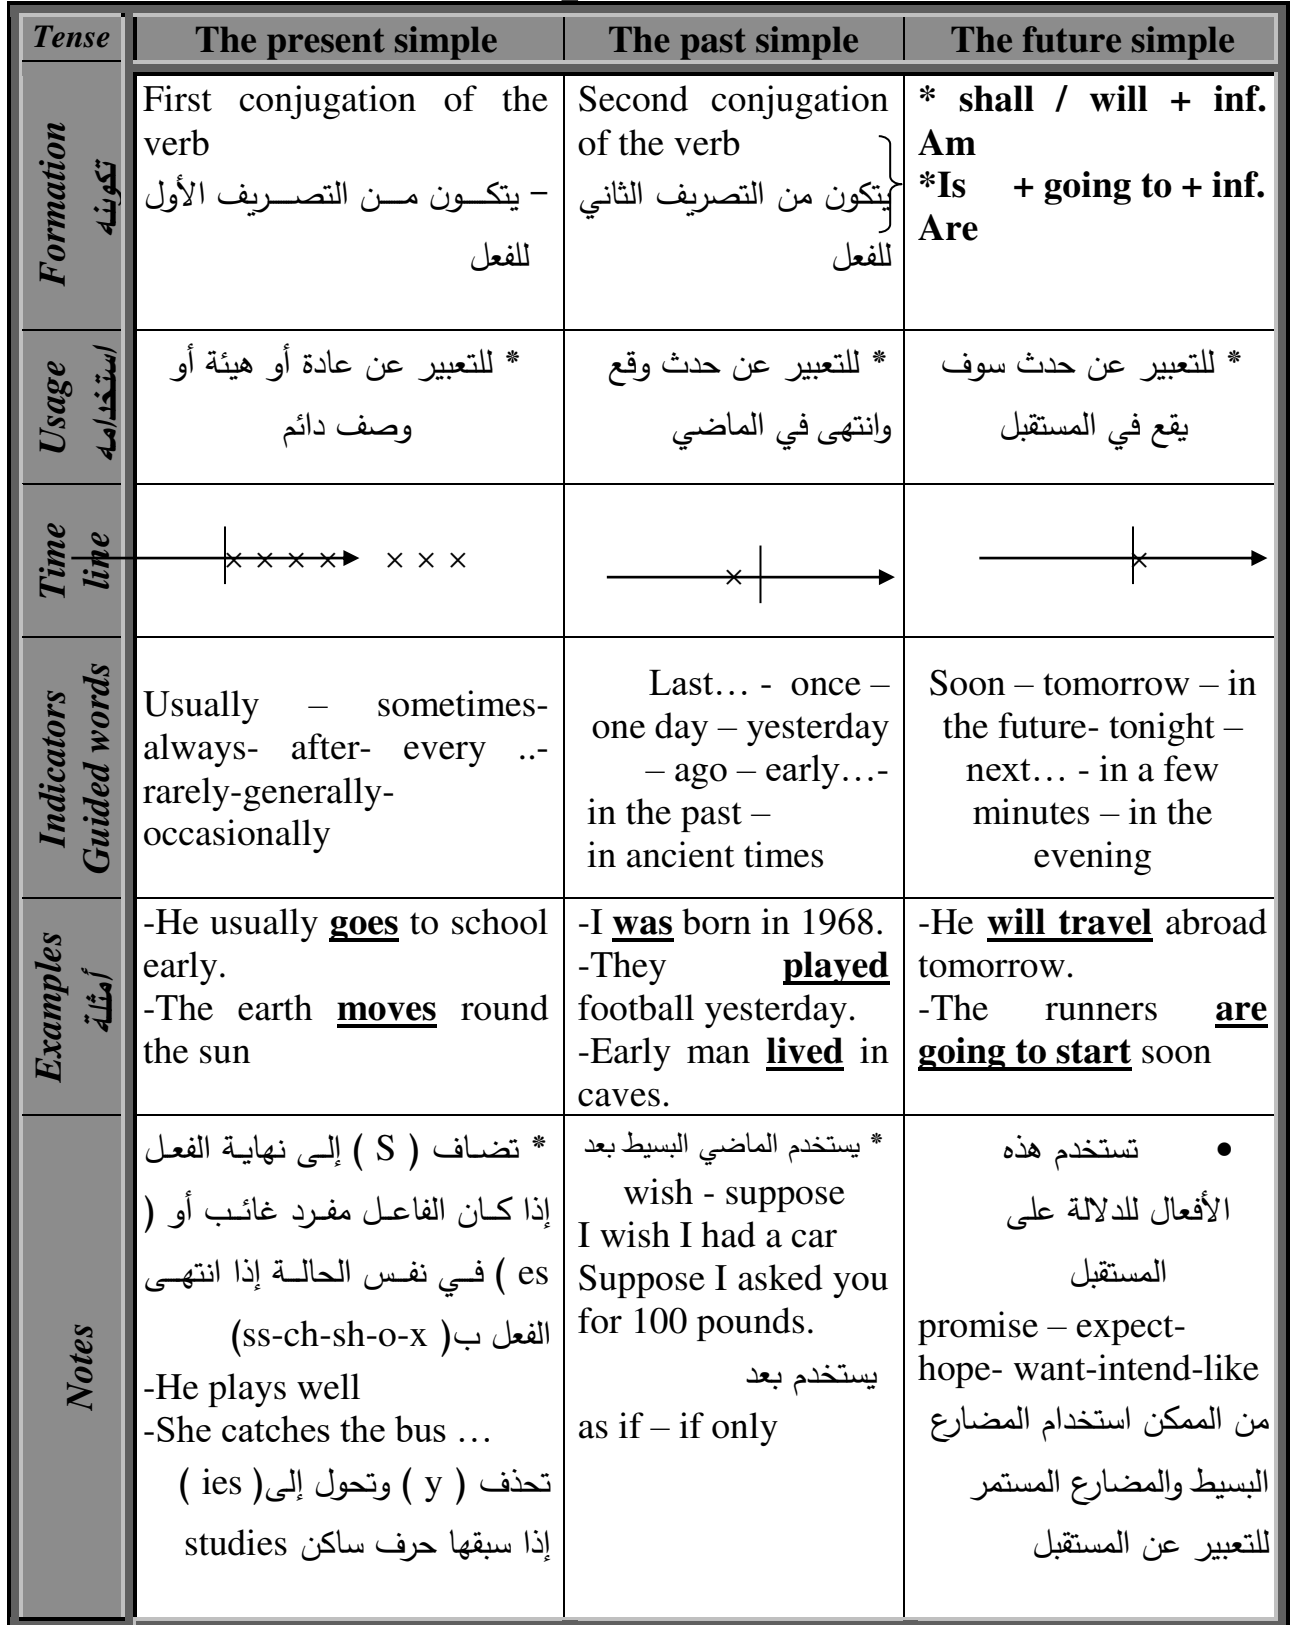 Tense
The present simple
The past simple
The future simple
Formation
تكوينه
First conjugation of the
verb
– يتكـــون مـــن التصـــريف الأول
للفعل
Second conjugation
of the verb
يتكون من التصريف الثاني
للفعل
* shall / will + inf.
Am
*Is + going to + inf.
Are
Usage
استخدامه
* للتعبير عن عادة أو هيئة أو
وصف دائم
* للتعبير عن حدث وقع
وانتهى في الماضي
* للتعبير عن حدث سوف
يقع في المستقبل
Time
line
× × × × × × ×
×
×
Indicators
Guided words
Usually – sometimes-
always- after- every ..-
rarely-generally-
occasionally
Last… - once –
one day – yesterday
– ago – early…-
in the past –
in ancient times
Soon – tomorrow – in
the future- tonight –
next… - in a few
minutes – in the
evening
Examples
أمثلة
-He usually goes to school
early.
-The earth moves round
the sun
-I was born in 1968.
-They played
football yesterday.
-Early man lived in
caves.
-He will travel abroad
tomorrow.
-The runners are
going to start soon
Notes
* تضاف ( S ) إلى نهاية الفعل
إذا كان الفاعل مفرد غائب أو (
es ) في نفس الحالة إذا انتهى
الفعل ب( ss-ch-sh-o-x)
-He plays well
-She catches the bus …
تحذف ( y ) وتحول إلى( ies )
إذا سبقها حرف ساكن studies
* يستخدم الماضي البسيط بعد
wish - suppose
I wish I had a car
Suppose I asked you
for 100 pounds.
يستخدم بعد
as if – if only
• تستخدم هذه
الأفعال للدلالة على
المستقبل
promise – expect-
hope- want-intend-like
من الممكن استخدام المضارع
البسيط والمضارع المستمر
للتعبير عن المستقبل